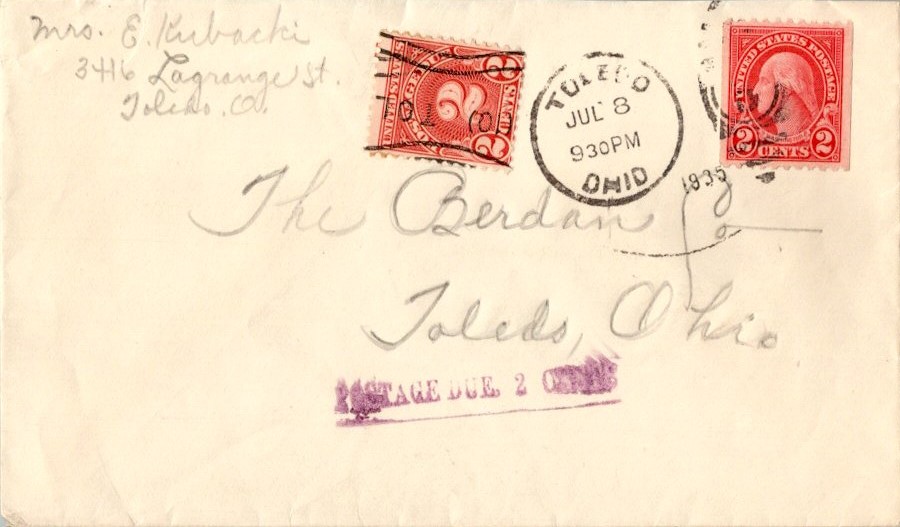 Mrs. E. Kubacki
3416 Lagrange St.
Toledo. O.
UNITED STATES POSTAGE
2 CENTS 2
POSTAGE DUE
2
2 CENTS 2
TOLEDO
JUL 8
930PM
OHIO
1935
The Berdan Co
Toledo, Ohio
POSTAGE DUE. 2 CENTS